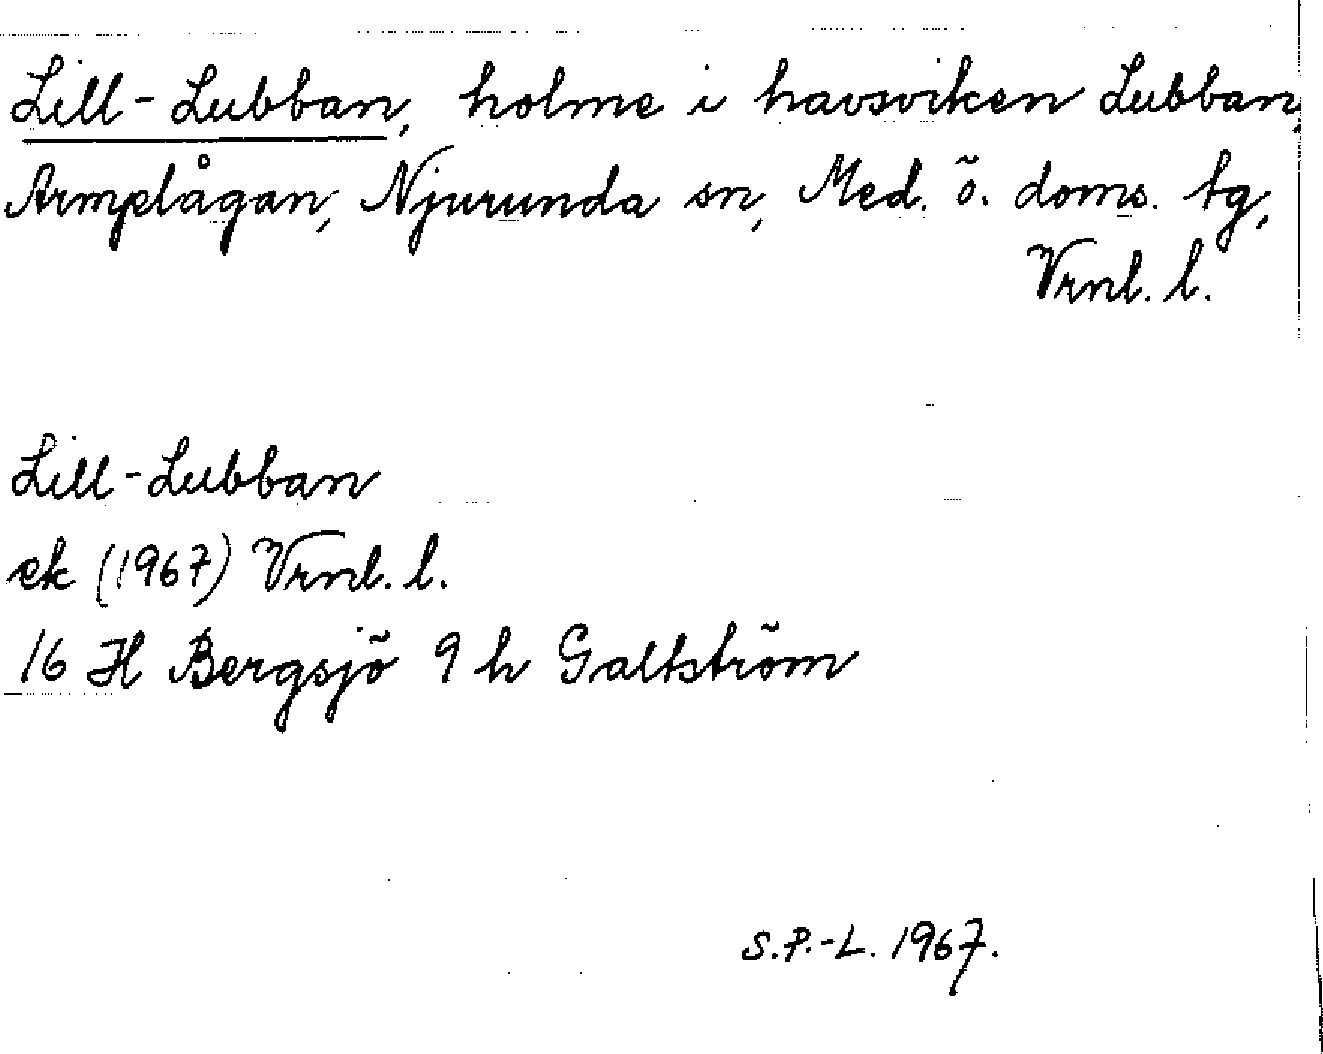 Lill-Lubban, holme i havsviken Lubban,
Armelågan, Njurunda sn, Med. ö. doms. tg,
Vrnl. l.
Lill-Lubban
ek (1967) Vrnl. l.
16 H Bergsjö 9 h Galtström
S.P.-L. 1967.